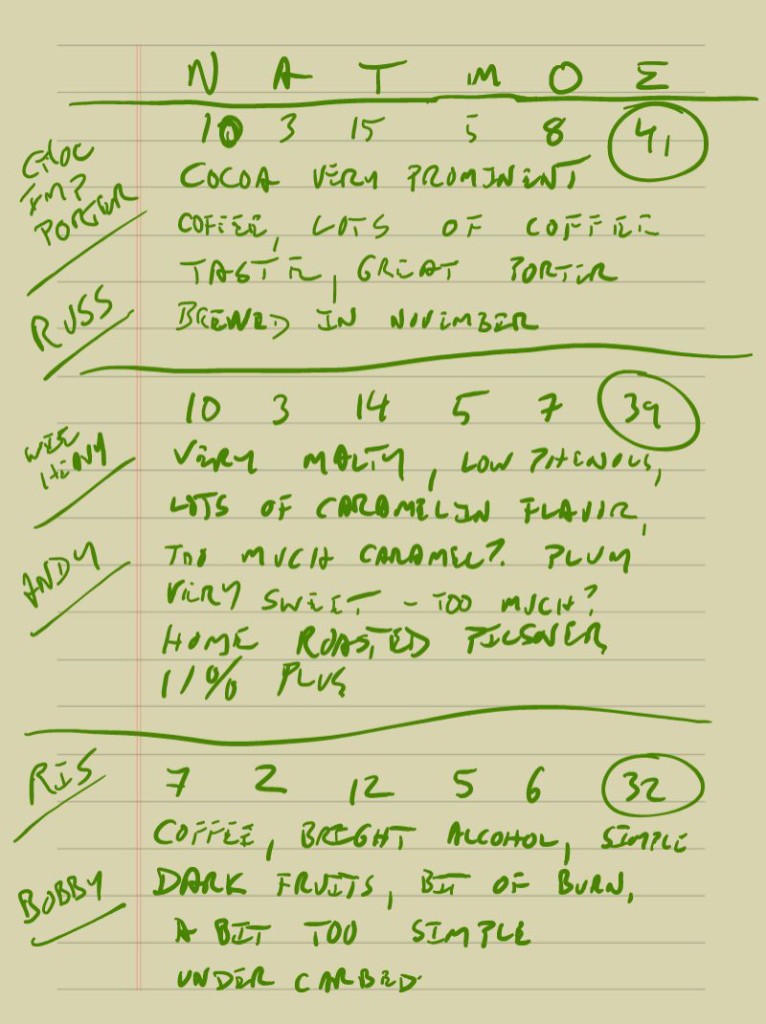 N A T M O Σ
10 3 15 5 8 41
CHOC
IMP
PORTER
COCOA VERY PROMINENT
COFFEE, LOTS OF COFFEE
TASTE, GREAT PORTER
RUSS
BREWED IN NOVEMBER
10 3 14 5 7 39
WEE
HEAVY
VERY MALTY, LOW PHENOLS,
LOTS OF CARAMEL IN FLAVOR,
ANDY
TOO MUCH CARAMEL? PLUM
VERY SWEET - TOO MUCH?
HOME ROASTED PILSNER,
11% PLUS
RIS
7 2 12 5 6 32
COFFEE, BRIGHT ALCOHOL, SIMPLE
BOBBY
DARK FRUITS, BIT OF BURN,
A BIT TOO SIMPLE
UNDER CARBED